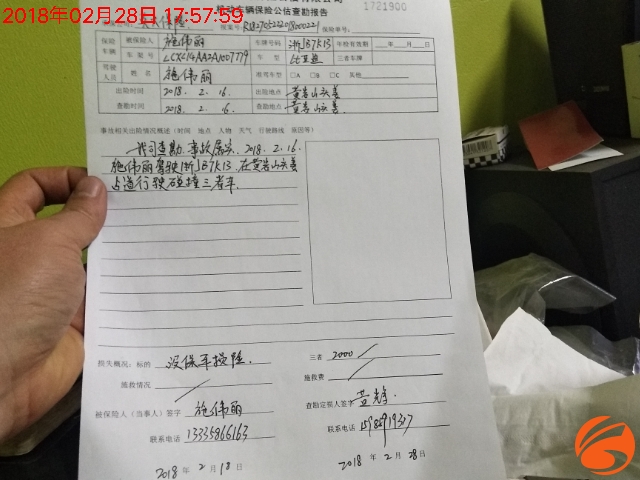 2018年02月28日 17:57:59
机动车辆保险公估查勘报告
1721900
保单号
保险车辆 被保险人 施伟丽 车牌号码 浙JB7K13 年检有效期 年 月 日
车架号 LCXC14AA2A1007779 车型 比亚迪 三者车牌
驾驶人员 姓名 施伟丽 准驾车型 □A □B □C 其他
出险时间 2018. 2. 16. 出险地点 黄岩山头善
查勘时间 2018. 2. 16. 查勘地点 黄岩山头善
事故相关出险情况概述(时间 地点 人物 天气 行驶路线 原因等)
我司查勘, 事故属实, 2018. 2. 16.
施伟丽驾驶浙JB7K13, 在黄岩山头善
占道行驶碰撞三者车
损失概况:标的 没保车损险. 三者 2000
施救情况 施救费
被保险人(当事人)签字 施伟丽 查勘定损人签字
联系电话 13335866163 联系电话
2018 年 2 月 18 日 2018 年 2 月 28 日